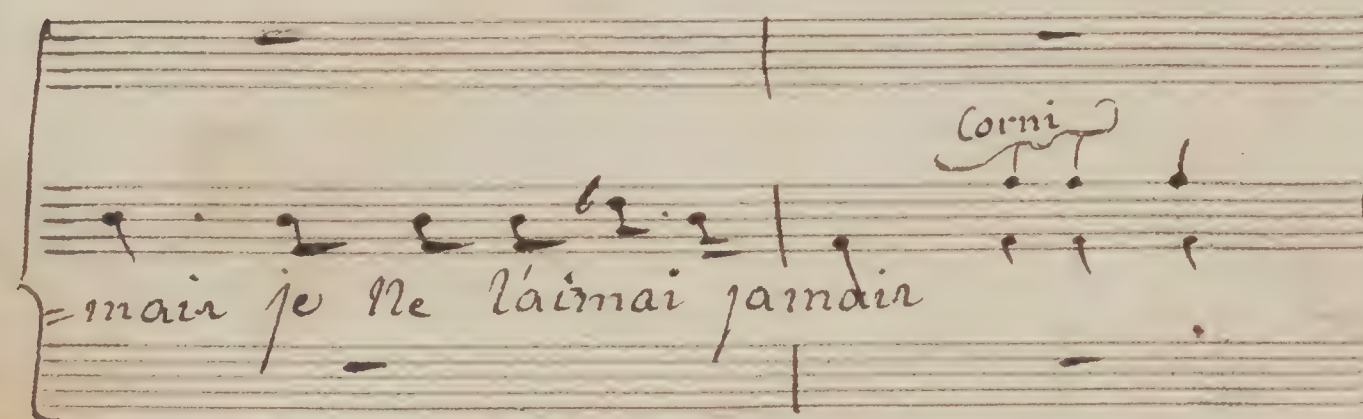 Corni
=mais je ne l'aimai jamais